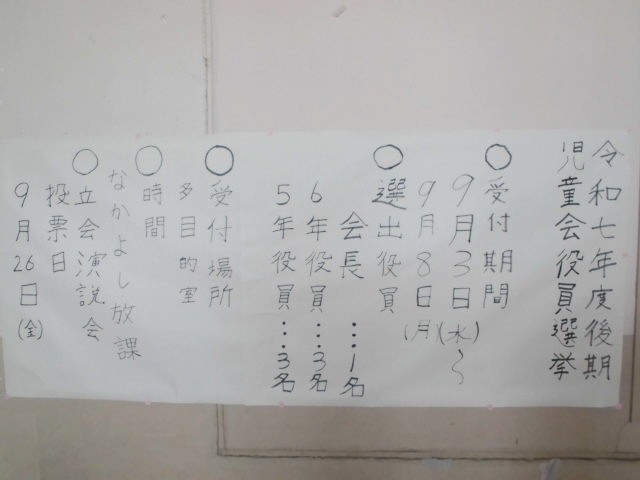 令和七年度後期
児童会役員選挙
○受付期間
9月3日(水)〜
9月8日(月)
○選出役員
会長…1名
6年役員…3名
5年役員…3名
○受付場所
多目的室
○時間
なかよし放課
○立会演説会
投票日
9月26日(金)